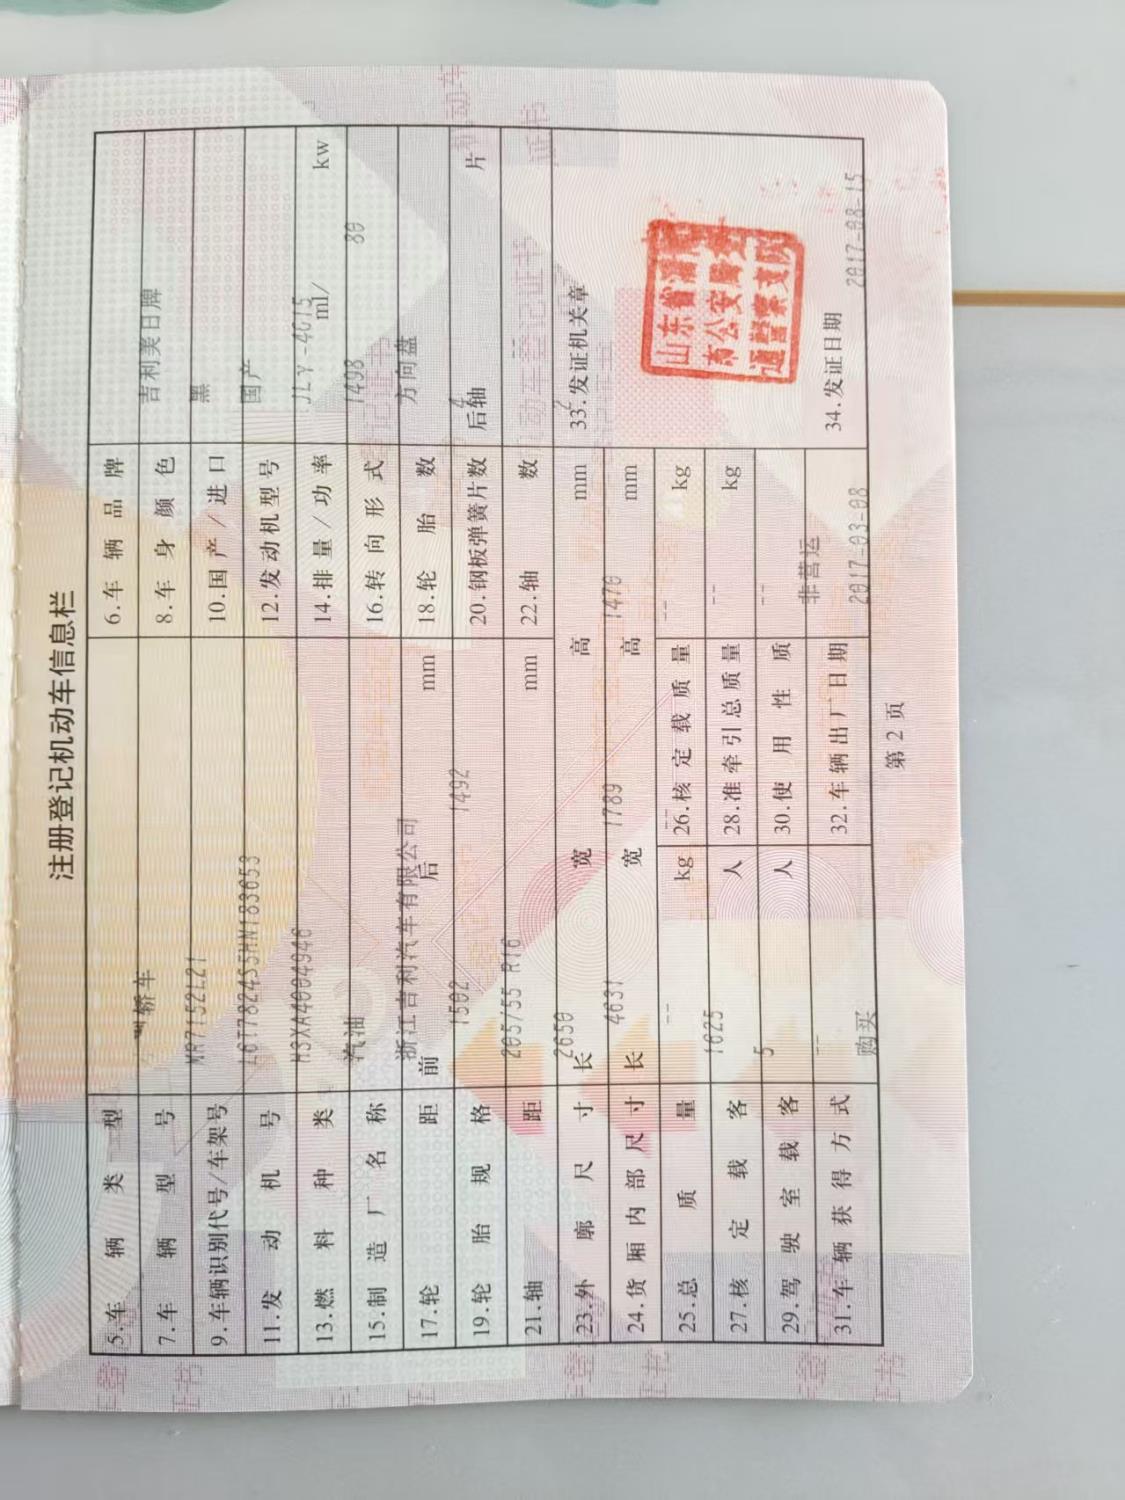 注册登记机动车信息栏
5.车辆类型 轿车 6.车辆品牌 吉利美日牌
7.车辆型号 MR7152L21 8.车身颜色 黑
9.车辆识别代号/车架号 L6T7824S5HN183653 10.国产/进口 国产
11.发动机号 H3XA4004946 12.发动机型号 JLY-4G15
13.燃料种类 汽油 14.排量/功率 1498 ml/ 80 kw
15.制造厂名称 浙江吉利汽车有限公司 16.转向形式 方向盘
17.轮距 前 1502 后 1492 mm 18.轮胎数 4
19.轮胎规格 205/55 R16 20.钢板弹簧片数 后轴 -- 片
21.轴距 2650 mm 22.轴数 2
23.外廓尺寸 长 4631 宽 1789 高 1470 mm 33.发证机关章
24.货厢内部尺寸 长 -- 宽 -- 高 -- mm
25.总质量 1625 kg 26.核定载质量 -- kg
27.核定载客 5 人 28.准牵引总质量 -- kg
29.驾驶室载客 -- 人 30.使用性质 非营运
31.车辆获得方式 购买 32.车辆出厂日期 2017-03-08 34.发证日期 2017-08-15
第2页